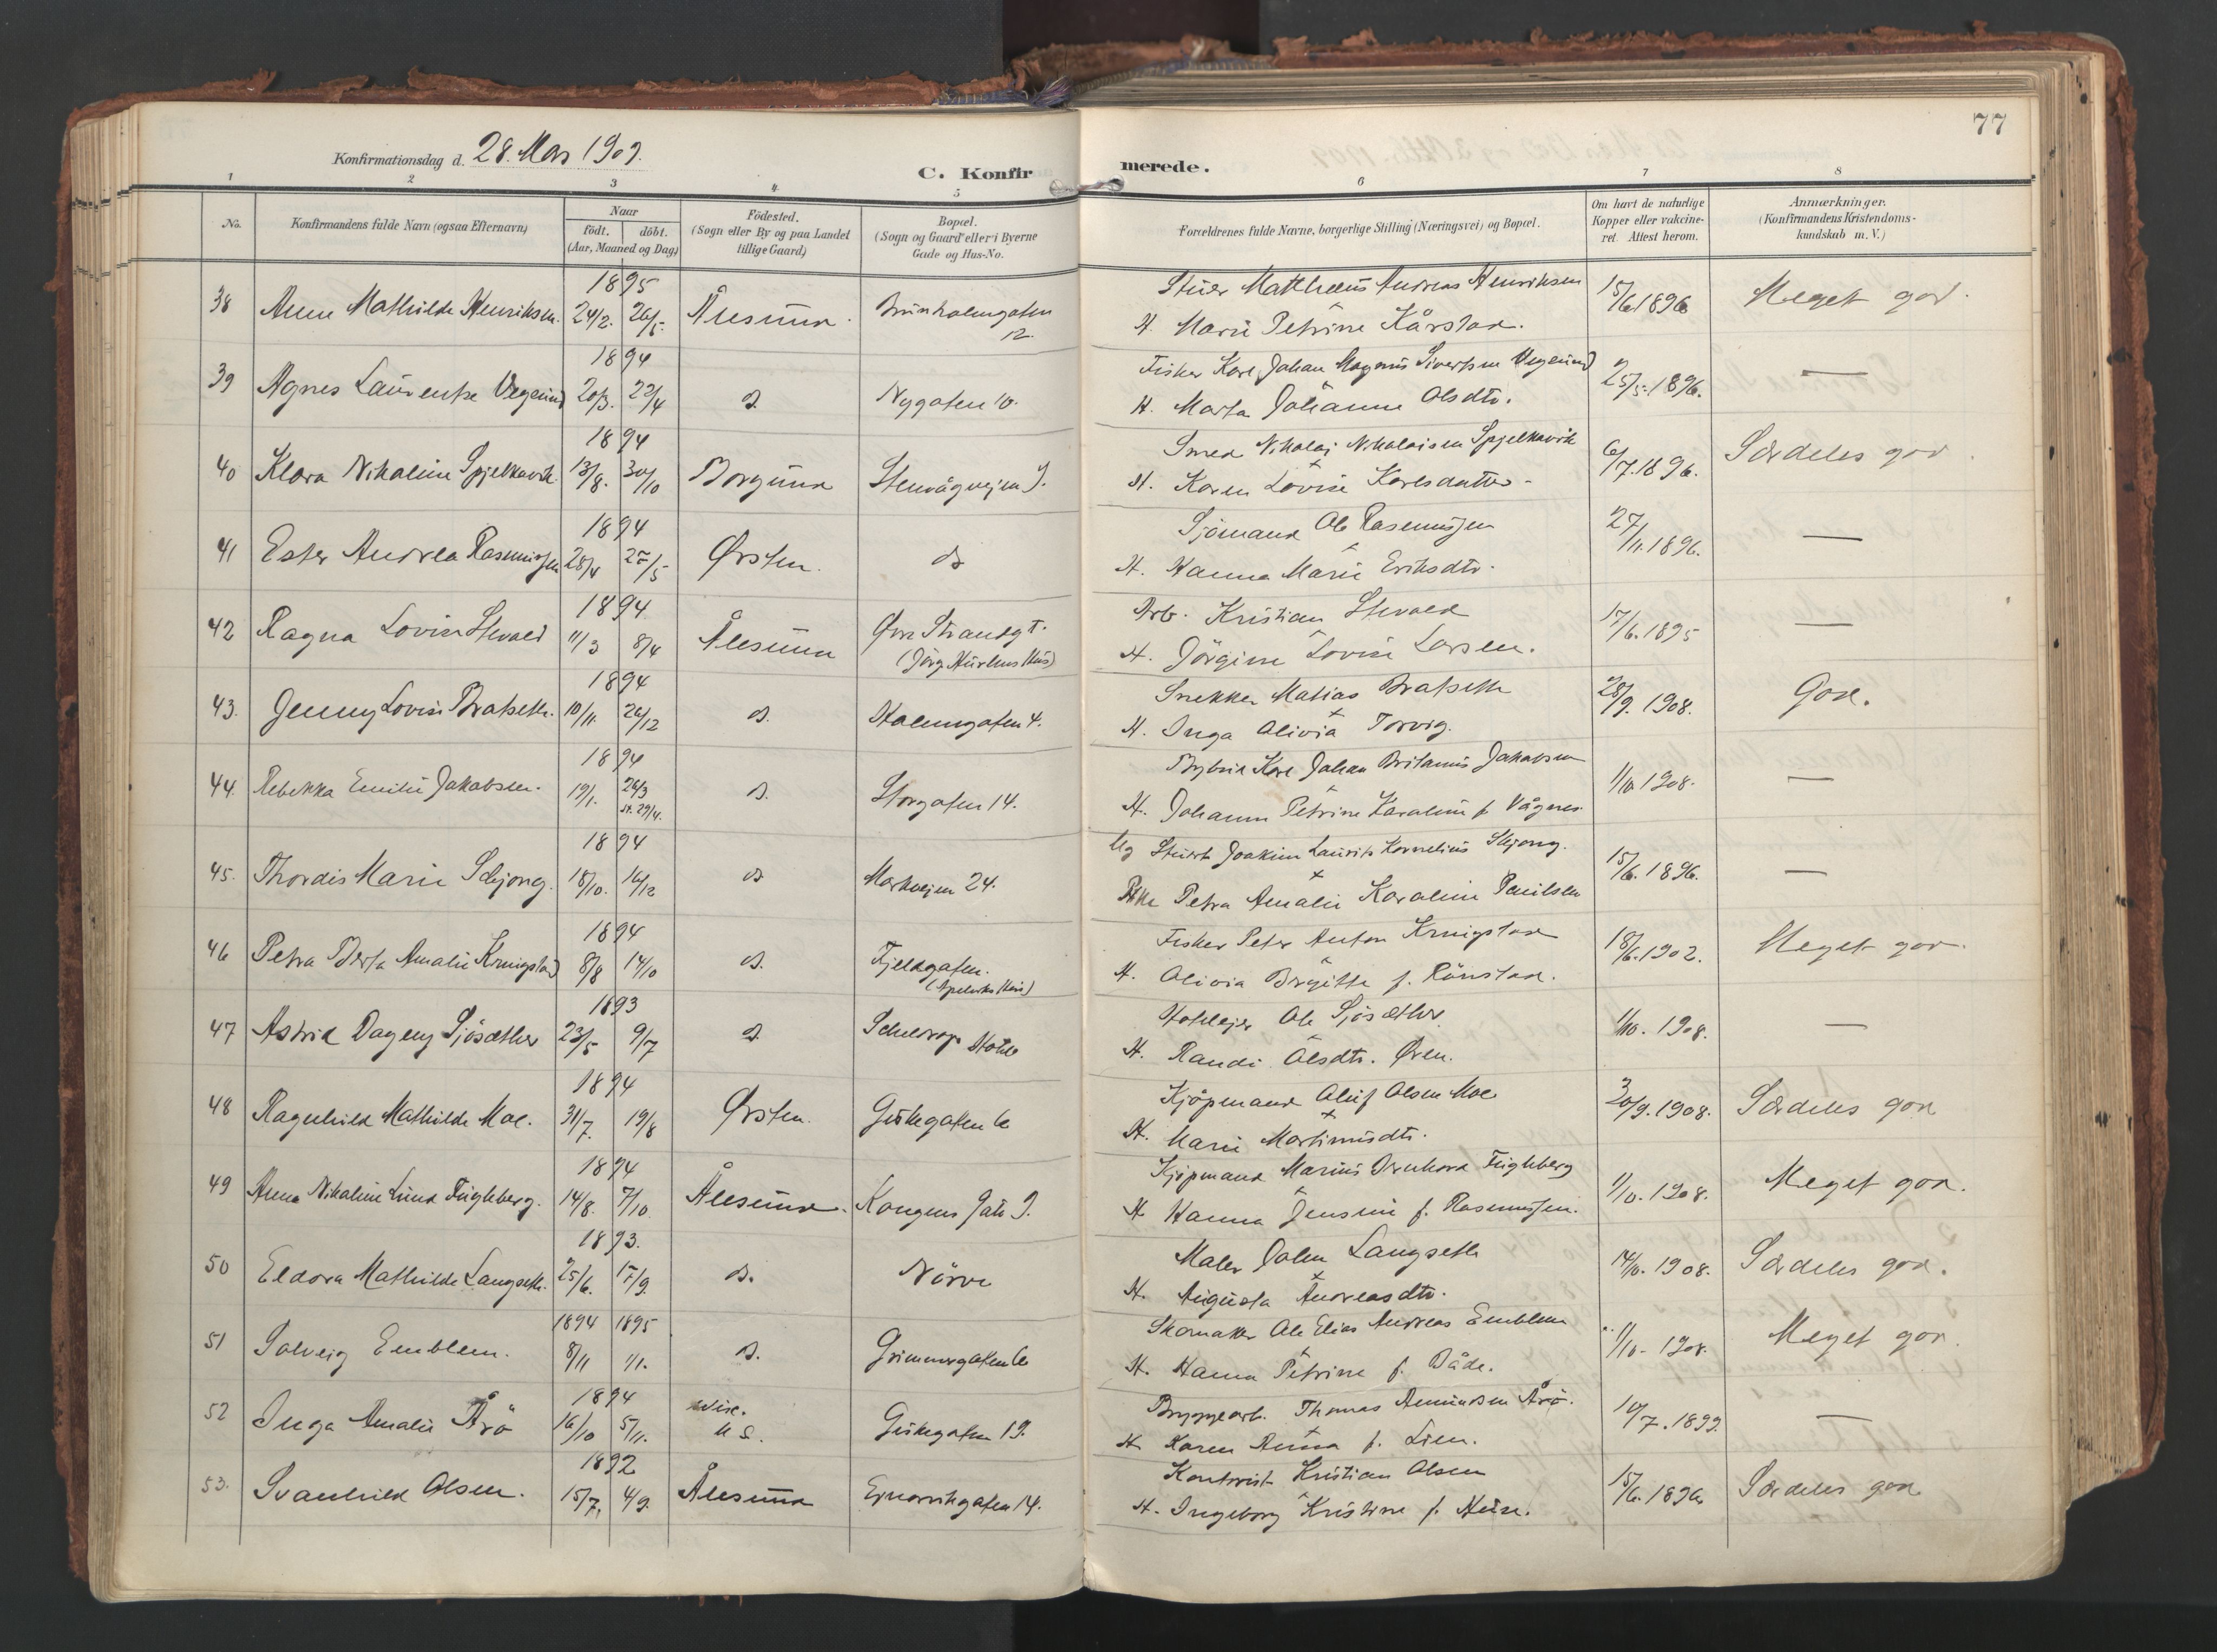 77
Konfirmationsdag d. 28. Mars 1909.
C. Konfirmerede.
1 2 3 4 5 6 7 8
No. Konfirmandens fulde Navn (ogsaa Efternavn) Naar født. døbt. (Aar, Maaned og Dag) Fødested. (Sogn eller By og paa Landet tillige Gaard) Bopæl. (Sogn og Gaard eller i Byerne Gade og Hus-No. Forældrenes fulde Navne, borgerlige Stilling (Næringsvei) og Bopæl. Om havt de naturlige Kopper eller vakcineret. Attest herom. Anmærkninger. (Konfirmandens Kristendomskundskab m. V.)
1895 Matthæus Andreas Henriksen
38 Anne Mathilde Henriksen. 24/2. 26/5. Ålesund. Bunholmgaten 12. 15/6 1896 Meget god.
H. Marie Petrine Kårstad.
1894 Fisker Karl Johan Magnus Sivertsen Vegsund
39 Agnes Laurentse Vegsund 20/3. 22/4 d. Nygaten 10. 25/5. 1896. —
H. Marta Johanne Olsdtr.
1894 Smed Nikolai Nikolaisen Spjelkavik
40 Klara Nikoline Spjelkavik. 13/8. 30/10 Borgund Stenvågveien 9. 6/7. 1896. Særdeles god.
H. Karen Lovise Karlsdatter
1894 Sjømand Ole Rasmussen
41 Ester Andrea Rasmussen 28/4 27/5 Ørsten. do 27/11. 1896. —
H. Hanna Marie Eriksdtr.
1894 Arb. Kristian Stevold
42 Ragna Lovise Stevold 11/3 8/4 Ålesund Øvre Strandgt. 17/6. 1895 —
H. Jørgine Lovise Larsen.
1894 Snekker Matias Bratseth
43. Jenny Lovise Bratseth. 10/11. 26/12 d. Holmgaten 4. 28/9. 1908. God.
H. Inga Olivia Torvig.
1894 Karl Johan Jakobsen
44. Rebekka Emilie Jakobsen. 19/1. 26/3 st. 29/4. d. Storgaten 14. 1/10 1908. —
H. Johanne Petrine Karoline f. Vågnes
1894 Ug Joakim Laurits Kornelius Skjong.
45. Thordis Marie Skjong. 18/10. 16/12 d. Markveien 24. 15/6. 1896. —
Pike Petra Amalie Karoline Paulsen
1894 Fisker Peter Anton Kringstad
46 Petra Berta Amalie Kringstad 8/8 14/10 d. Fjeldgaten. 18/6. 1902. Meget god.
H. Olivia Birgitte f. Rønstad.
1893 Hotelejer Ole Sjøsæther
47 Astrid Dagny Sjøsæther 23/5 9/7 d. Scheldrops Hotel 1/10. 1908. —
H. Randi Olsdtr. Øren.
1894 Kjøpmand Oluf Olsen Moe
48 Ragnhild Mathilde Moe. 31/7. 19/8 Ørsten. Giskegaten 6 30/9. 1908. Særdeles god
H. Marie Martinusdtr.
1894 Kjøpmand Marius Fugleberg
49 Anna Nikoline Lund Fugleberg. 14/8. 7/10 Ålesund. Kongens Gate 9. 1/10. 1908. Meget god.
H. Hanna Jensine f. Rasmussen.
1893. Maler John Langseth
50 Eldora Mathilde Langseth. 25/6. 17/9. d. Nørve 14/10. 1908. Særdeles god.
H. Augusta Andreasdtr.
1894 1895 Skomaker Ole Elias Andreas Emblem
51 Solveig Emblem. 8/11 1/1. d. Grimmergaten 6 1/10 - 1908. Meget god.
H. Hanna Petrine f. Både.
1894 Bryggearb. Thomas Amundsen Årø.
52 Inga Amalie Årø 16/10 5/11. U S. Giskegaten 19. 10/7. 1899. —
H. Karen Anna f. Lien.
1892 Kontorist Kristian Olsen
53. Svanhild Olsen. 15/7. 4/9. Ålesund Ejnarvikgaten 14. 15/6. 1896 Særdeles god
H. Ingeborg Kristine f. Huse.